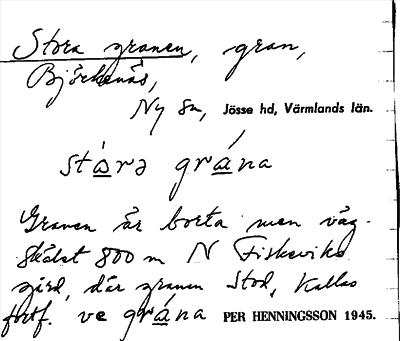 Stora granen, gran,
Björkenäs,
Ny sn, Jösse hd, Värmlands län.
stára grána
Granen är borta men väg-
skälet 800 m N Fiskeviks
gård, där granen stod, kallas
fortf. ve grána PER HENNINGSSON 1945.